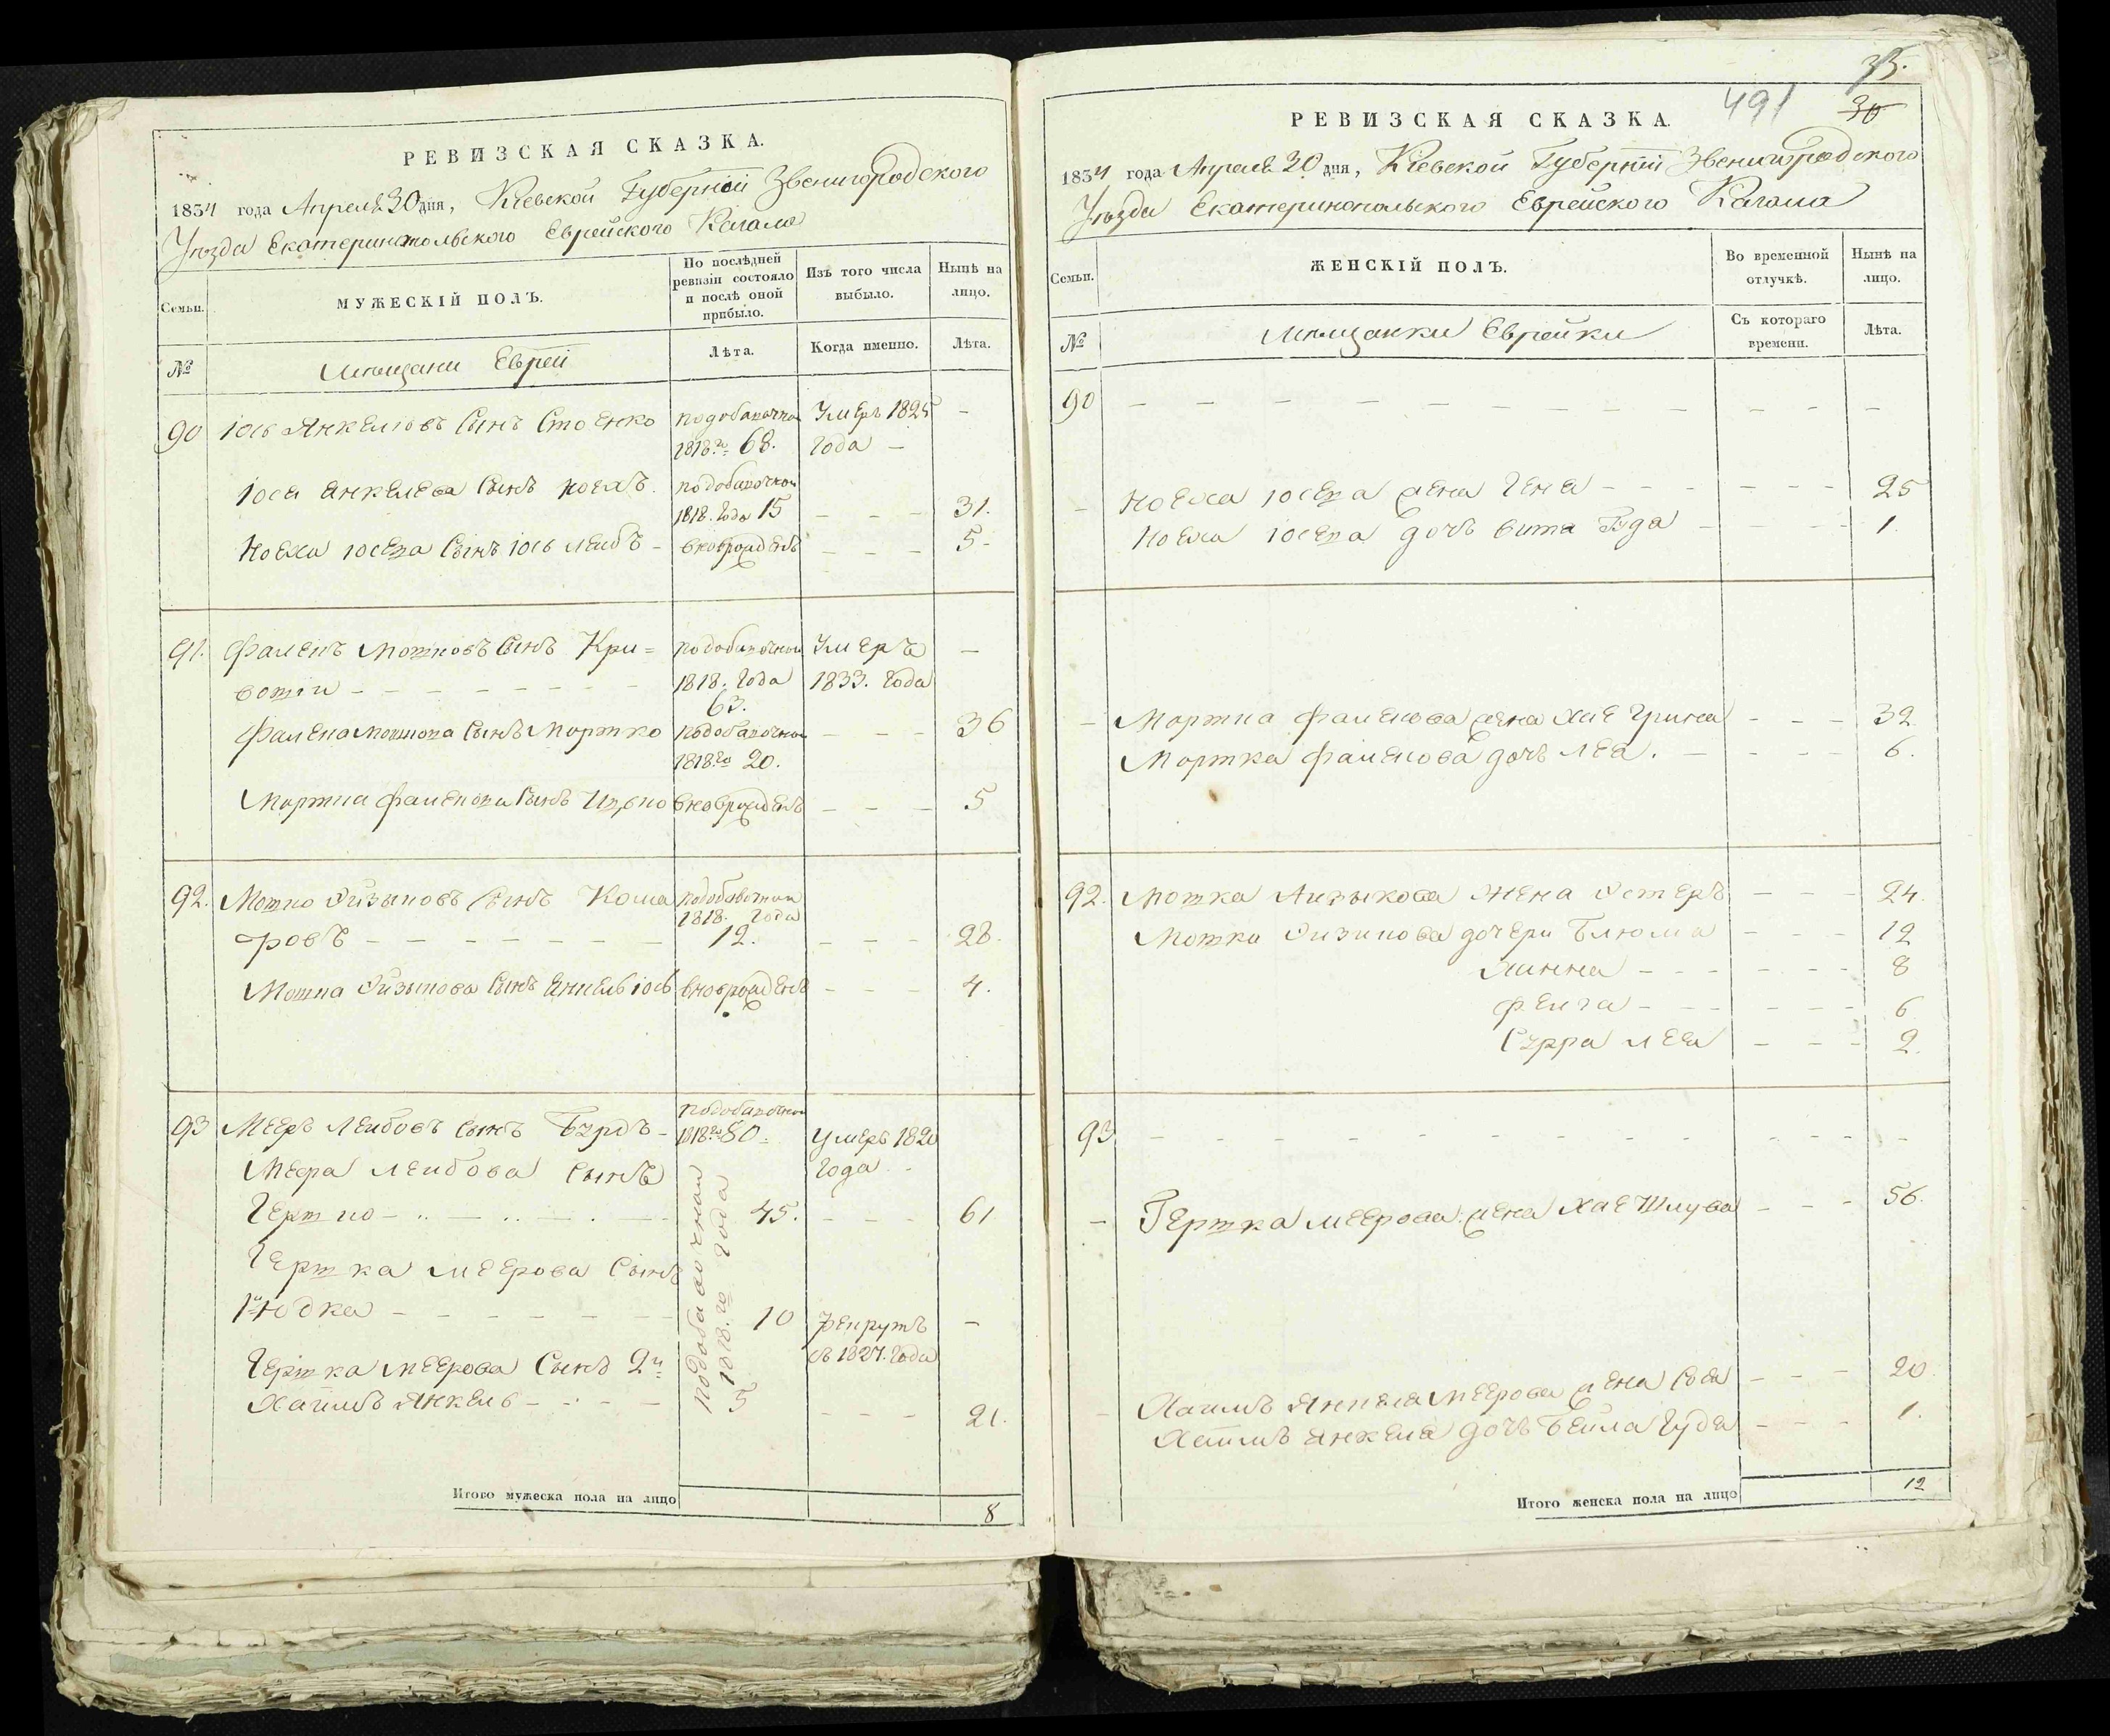 РЕВИЗСКАЯ СКАЗКА.
1834 года Апреля 30 дня, Кіевской Губерніи Звенигородского
Уѣзда Екатеринопольского Еврейского Кагала
Семьи.
МУЖЕСКІЙ ПОЛЪ.
По послѣдней
ревизіи состояло
и послѣ оной
прибыло.
Изъ того числа
выбыло.
Нынѣ на
лицо.
№
Мещани Еврей
Лѣта.
Когда именно.
Лѣта.
90 Іось Янкелювъ Сынъ Стоенко подобавочная Умеръ 1825 –
1818го 68. года –
Іося Анкелева Сынъ Ноехъ. подобавочной
1818. Года 15 – – – 31.
Ноеха Іосева Сынъ Іось Леибъ – вноврожденъ – – – 5–
91. Фалепъ Мотковъ Сынъ Кри= подобавочной Умеръ –
вотіи – – – – – – – 1818. Года 1833. Года
63.
Мортко подобавочной – – – 36
1818го 20.
Сынъ вноврожденъ – – – 5
92. Мотко Ойзыковъ Сынъ Кома подобавочной
1818. Года
ровъ – – – – – – – 12. – – – 28.
Мотка Ойзыкова Сынъ Енкель Іось вноврожденъ – – – 4.
93 Мееръ Леибовъ Сынъ Бурдъ – подобавочной
1818го 80. умеръ 1820
Меера Леибова Сынъ года –
Гертко – – – 45. – – – 61
подобавочная
1818.го года
Гертка Меерова Сынъ
1й Юдка – – – – – – 10 рекрутъ –
Гертка Меерова Сынъ 2й съ 1827. Года
Хаимъ Янкель – – – 5 – – – 21.
Итого мужеска пола на лицо 8
35.
491 30
РЕВИЗСКАЯ СКАЗКА.
1834 года Апреля 30 дня, Кіевской Губерніи Звенигородского
Уѣзда Екатеринопольского Еврейского Кагала
Семьи.
ЖЕНСКІЙ ПОЛЪ.
Во временной
отлучкѣ.
Нынѣ на
лицо.
№
Мещанки Еврейки
Съ котораго
времени.
Лѣта.
90 – – – – – – – – – – –
– Ноеха Іосева жена Гена – – – – – – 25
Ноеха Іосева дочъ Вита Гуда – – – – 1.
– Мортка жена Хае – – – 32
Мортка дочъ Леа. – – – – 6.
92. Мотка Аизыкова жена Эстеръ – – – 24.
Мотка Оизикова дочери Блюма – – – 12
Ханна – – – – – – 8
Феига – – – – – – 6
Сурра Леа – – – 2.
93 – – – – – – – – – – –
– Гертка Меерова жена Хае – – – 56.
– Хаимъ Янкеля Меерова жена – – – 20.
Хаимъ Анкеля дочъ Беила Гуда – – – 1.
Итого женска пола на лицо 12